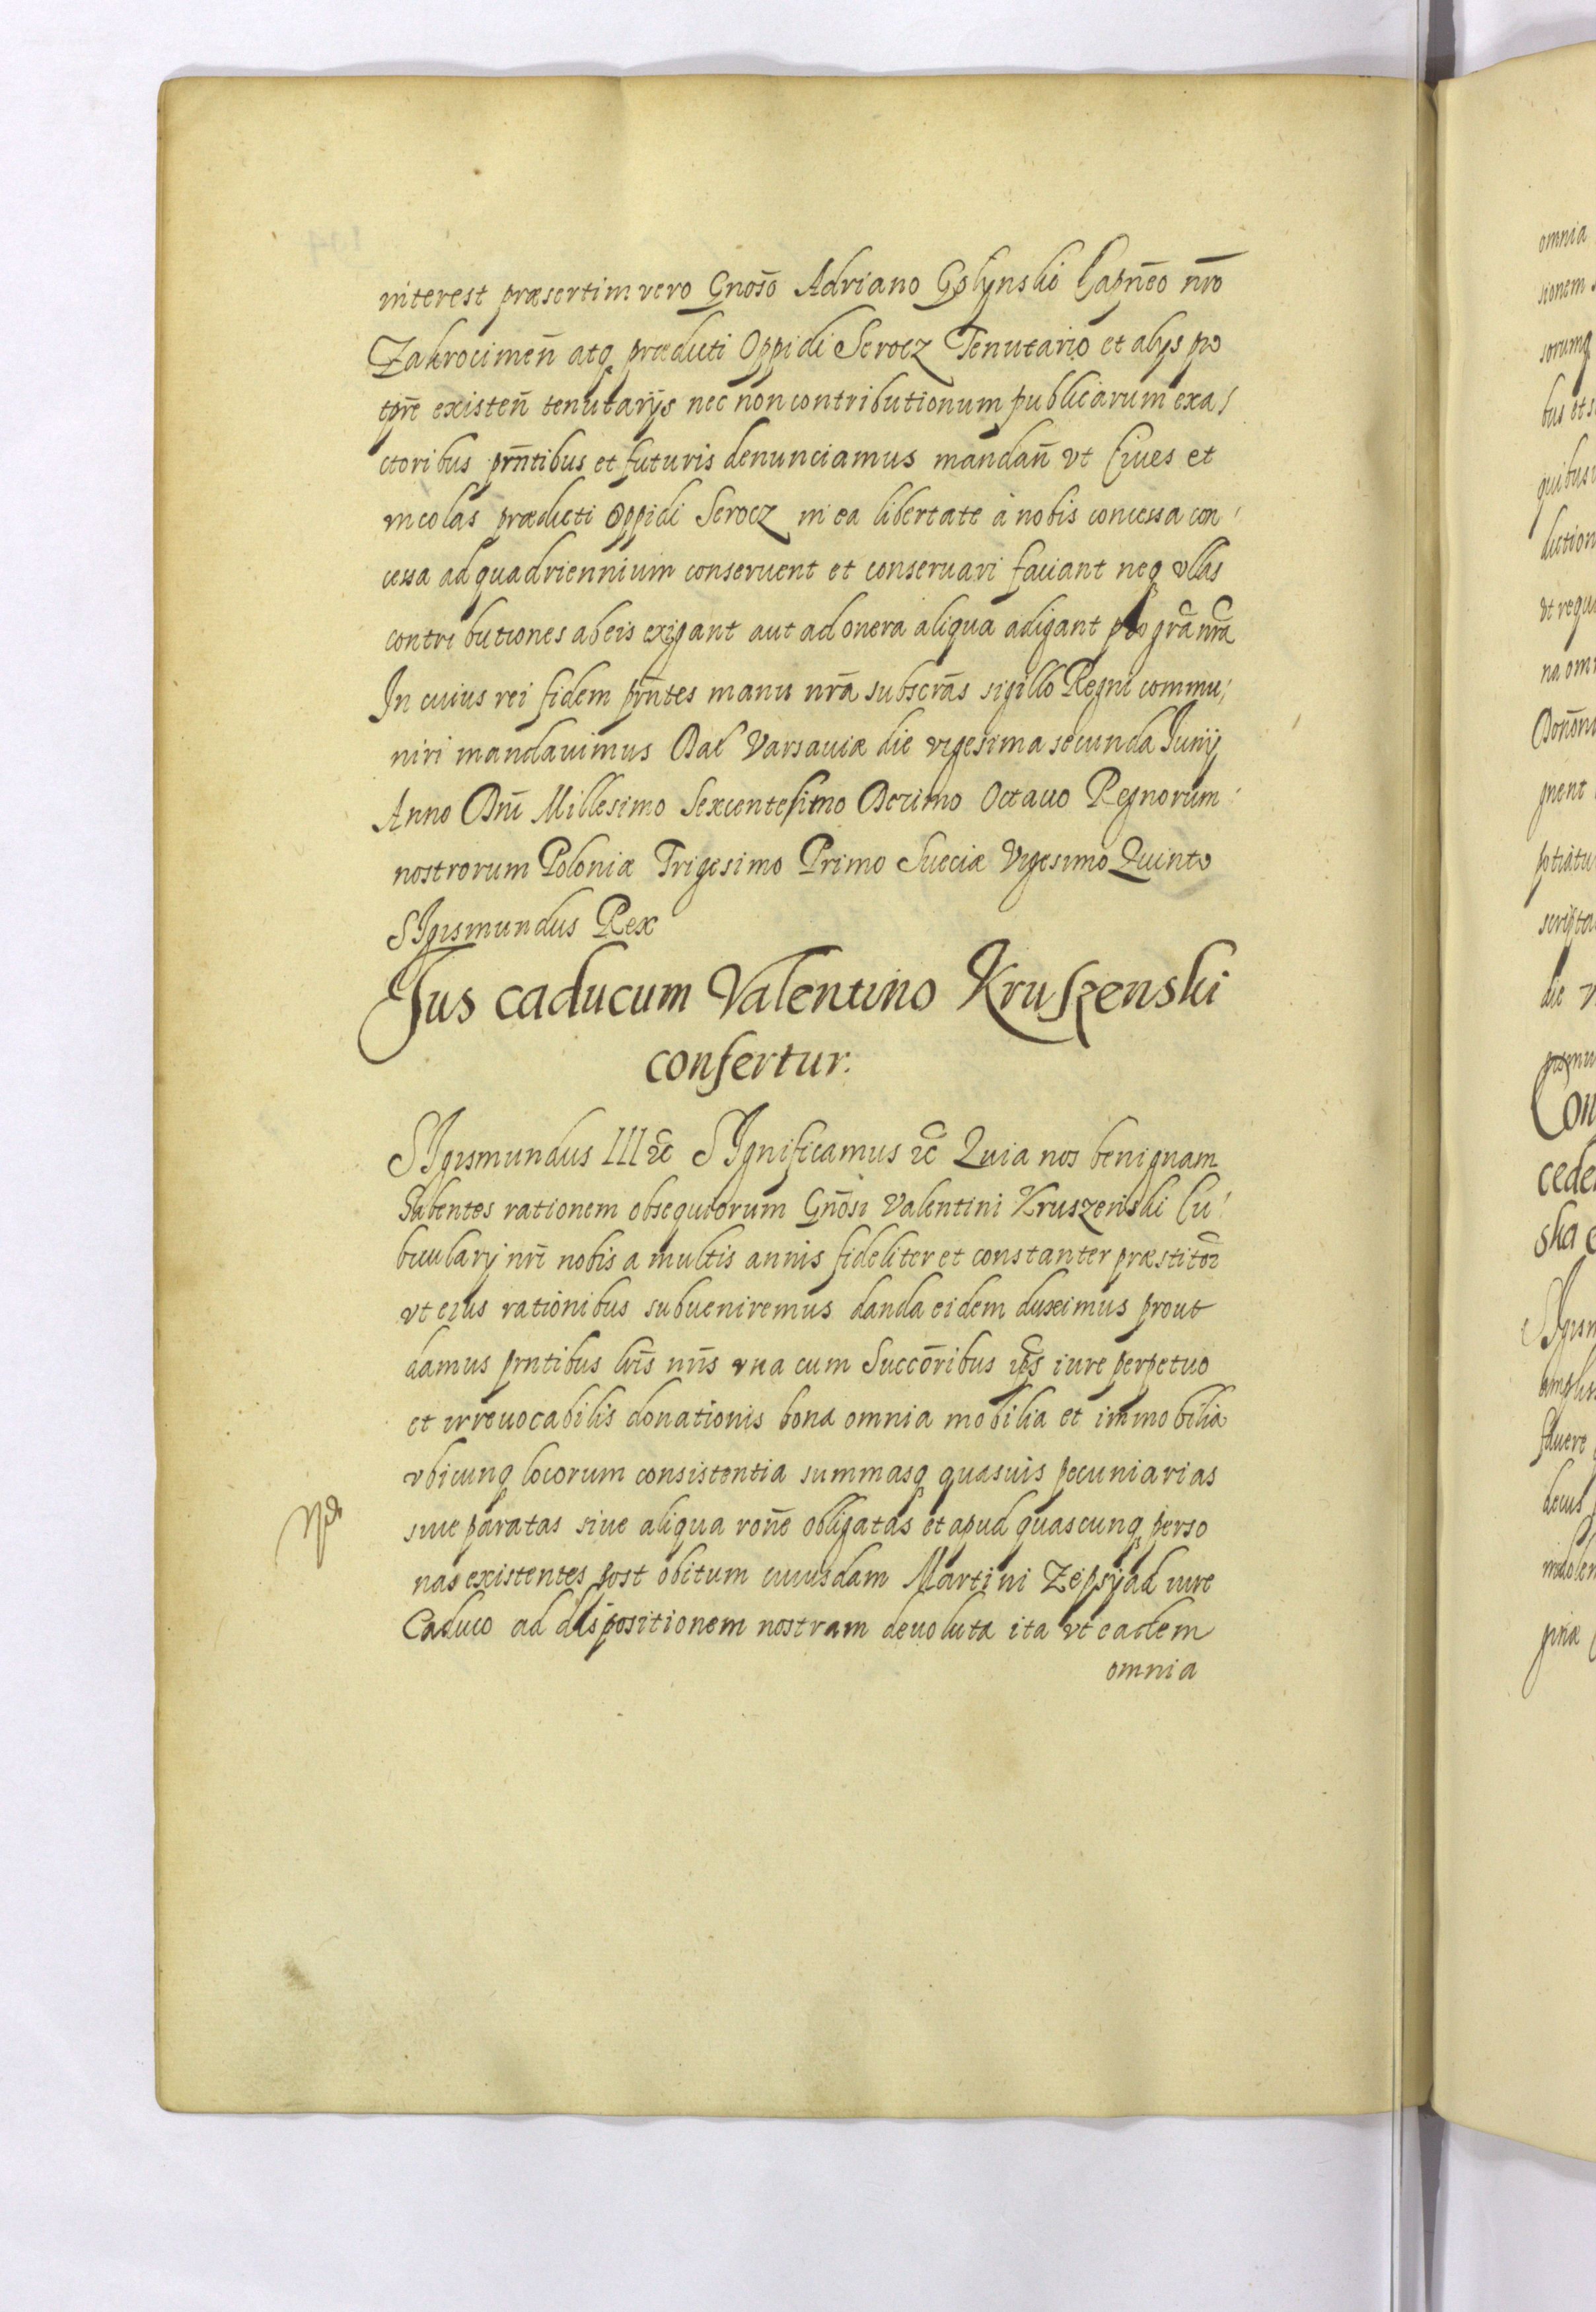 interest præsertim vero Gnoso Adriano Golynski Capneo nro
Zakrocimen atq prædicti Oppidi Serocz Tenutario et alys pro
tpre existen tenutarijs nec non contributionum publicarum exa/
ctoribus prntibus et futuris denunciamus mandan vt Ciues et
incolas prædicti Oppidi Serocz in ea libertate à nobis concessa con
cessa ad quadriennium conseruent et conseruari faciant neq vllas
contributiones ab eis exigant aut ad onera aliqua adigant pro gra nra
In cuius rei fidem prntes manu nra subscras sigillo Regni commu/
niri mandauimus Dat Varsauiæ die vigesima secunda Junij
Anno Dni Millesimo Sexcentesimo Decimo Octauo Regnorum
nostrorum Poloniæ Trigesimo Primo Sueciæ Vigesimo Quinto
SIgismundus Rex
Jus caducum Valentino Kruszenski
confertur.
SIgismundus III etc SIgnificamus etc Quia nos benignam
Habentes rationem obsequiorum Gnosi Valentini Kruszenski Cu
bicularij nri nobis a multis annis fideliter et constanter præstitor
vt eius rationibus subueniremus danda eidem duximus prout
damus prntibus lris nris vna cum Succoribus ips iure perpetuo
et irreuocabilis donationis bona omnia mobilia et immobilia
vbicunq locorum consistentia summasq quasuis pecuniarias
siue paratas siue aliqua rone obligatas et apud quascunq perso
nas existentes post obitum cuiusdam Martini Zepsyad iure
Caduco ad dispositionem nostram deuoluta ita vt eadem
omnia